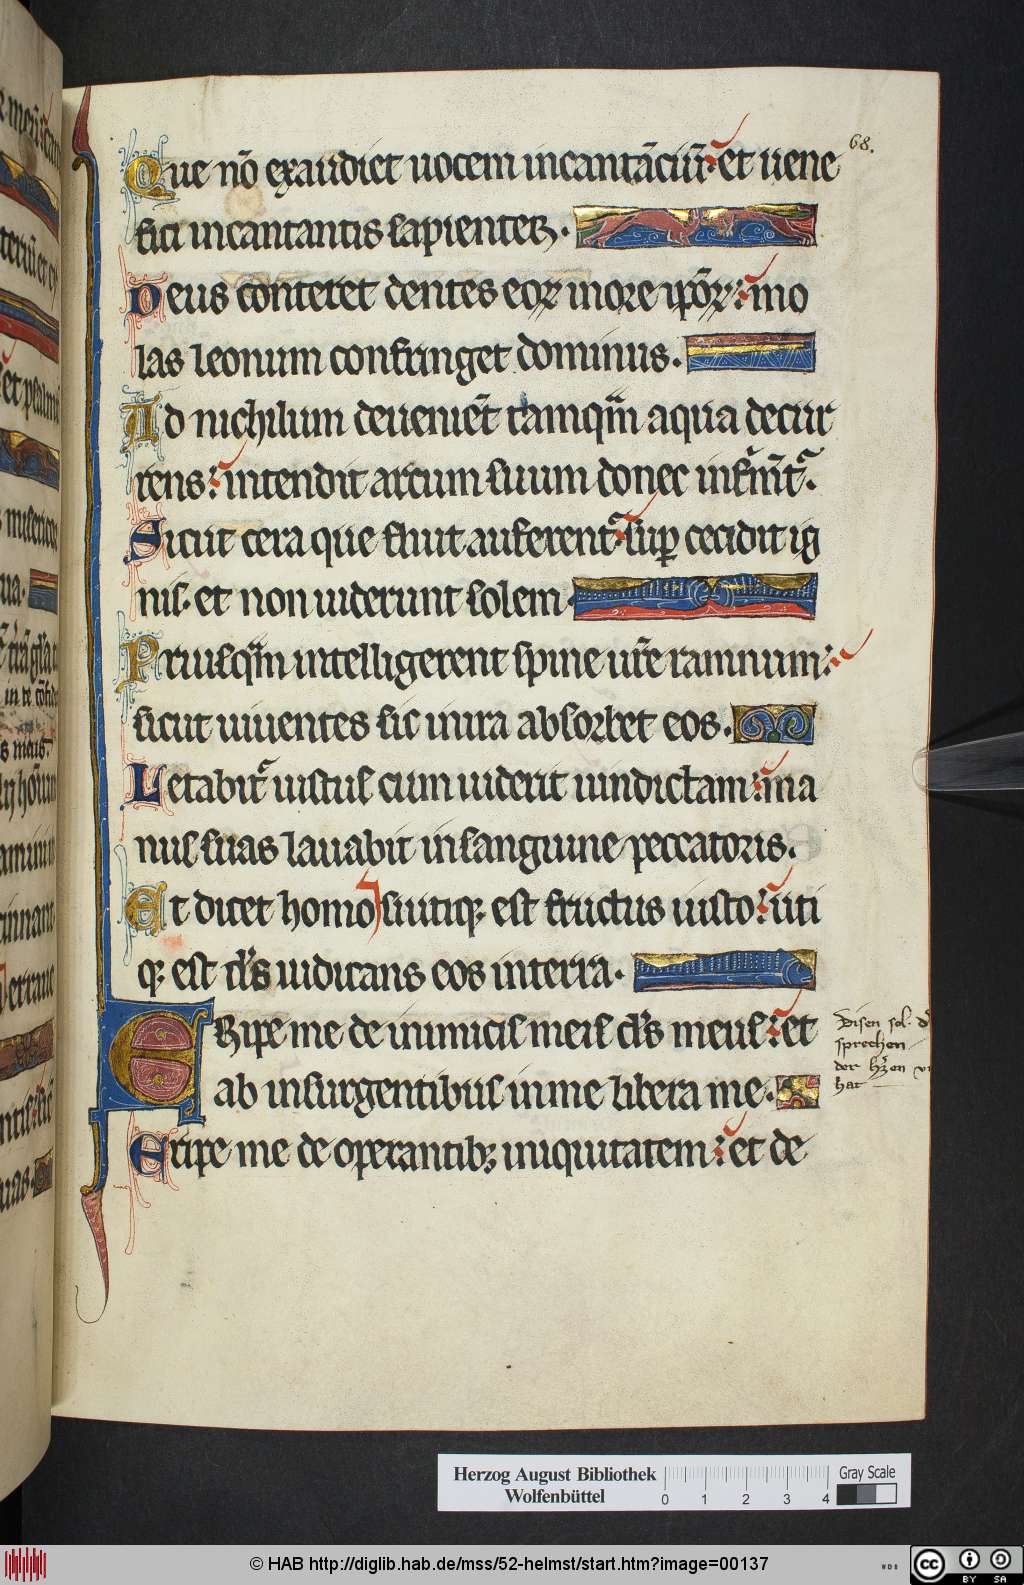 68.
Que nō exaudiet uocem incantāciū: et uene
fici incantantis sapienter.
Deus conteret dentes eoꝝ in ore ipōꝝ: mo
las leonum confringet dominus.
Ad nichilum deueniēt tamqͫ aqua decur
rens: intendit arcum suum donec
Sicut cera que fluit auferent᷑: suꝑ cecidit ig
nis. et non uiderunt solem.
Priusqͫ intelligerent spine ur̄e ramnum:
sicut uiuentes sic in ira absorbet eos.
Letabit᷑ iustus cum uiderit uindictam: ma
nus suas lauabit in sanguine peccatoris.
Et dicet homo si utiqꝫ est fructus iusto: uti
qꝫ est d̄s iudicans eos in terra.
Eripe me de inimicis meis d̄s meus: et
ab insurgentibus in me libera me.
Eripe me de operantibꝫ iniquitatem: et de
Disen sol
sprechen
der
hat
Herzog August Bibliothek
Wolfenbüttel
0 1 2 3 4
Gray Scale
© HAB http://diglib.hab.de/mss/52-helmst/start.htm?image=00137
cc BY SA